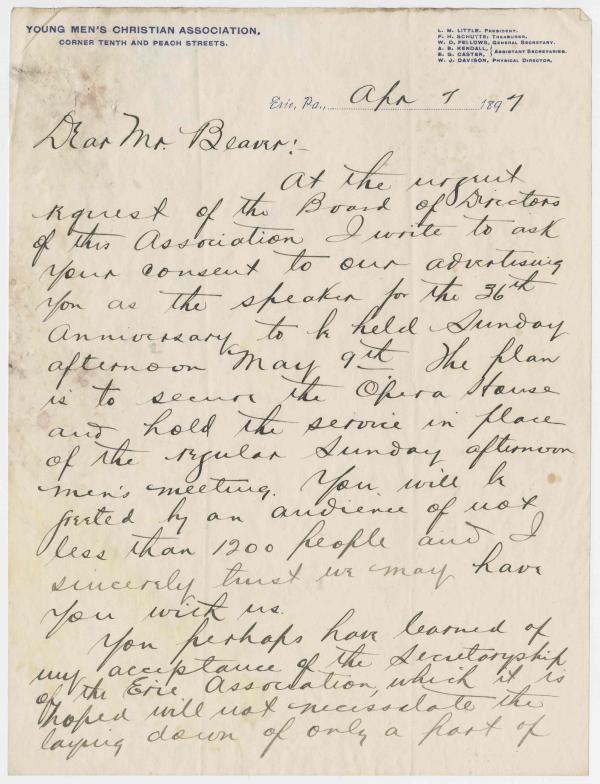 YOUNG MEN'S CHRISTIAN ASSOCIATION,
CORNER TENTH AND PEACH STREETS.
L. M. LITTLE, PRESIDENT.
F. H. SCHUTTE, TREASURER,
W. D. FELLOWS, GENERAL SECRETARY.
A. B. KENDALL, } ASSISTANT SECRETARIES.
E. G. CASTER,
W. J. DAVISON, PHYSICAL DIRECTOR,
Erie, Pa., Apr 7 1897
Dear Mr. Beaver:-
At the urgent
request of the Board of Directors
of this Association I write to ask
your consent to our advertising
you as the speaker for the 36th
Anniversary to be held Sunday
afternoon May 9th. The plan
is to secure the Opera House
and hold the service in place
of the regular Sunday afternoon
men's meeting. You will be
greeted by an audience of not
less than 1200 people and I
sincerely trust we may have
you with us.
You perhaps have learned of
my acceptance of the Secretaryship
of the Erie Association, which it is
hoped will not necessitate the
laying down of only a part of